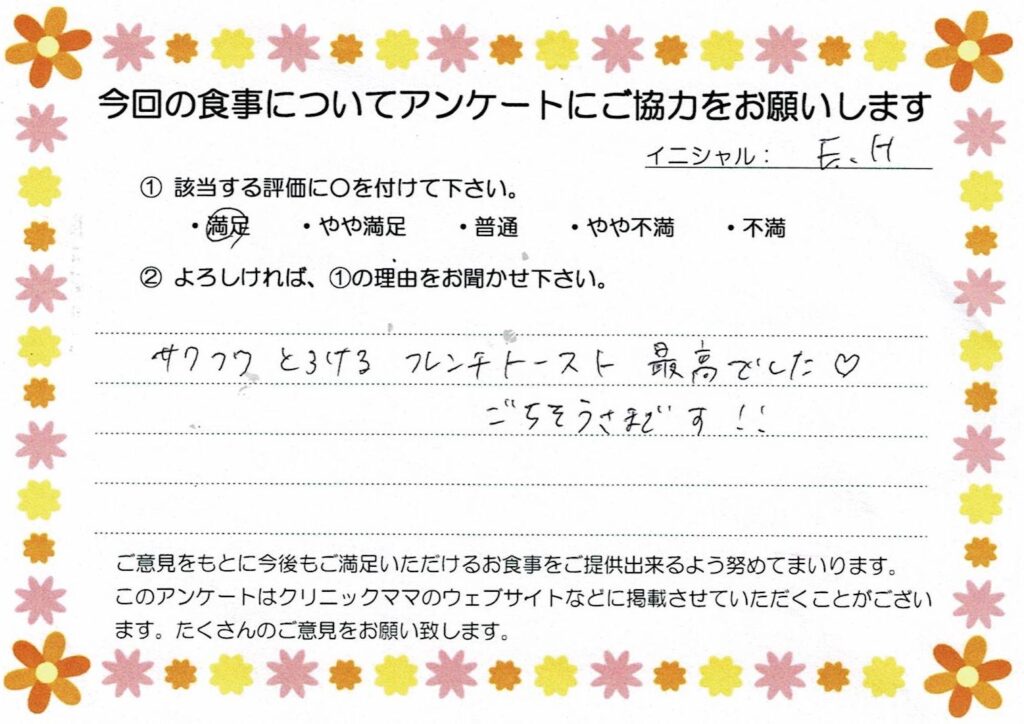 今回の食事についてアンケートにご協力をお願いします
イニシャル： E.H
① 該当する評価に〇を付けて下さい。
・満足 ・やや満足 ・普通 ・やや不満 ・不満
② よろしければ、①の理由をお聞かせ下さい。
サクフワ とろける フレンチトースト 最高でした♡
ごちそうさまです!!
ご意見をもとに今後もご満足いただけるお食事をご提供出来るよう努めてまいります。
このアンケートはクリニックママのウェブサイトなどに掲載させていただくことがござい
ます。たくさんのご意見をお願い致します。